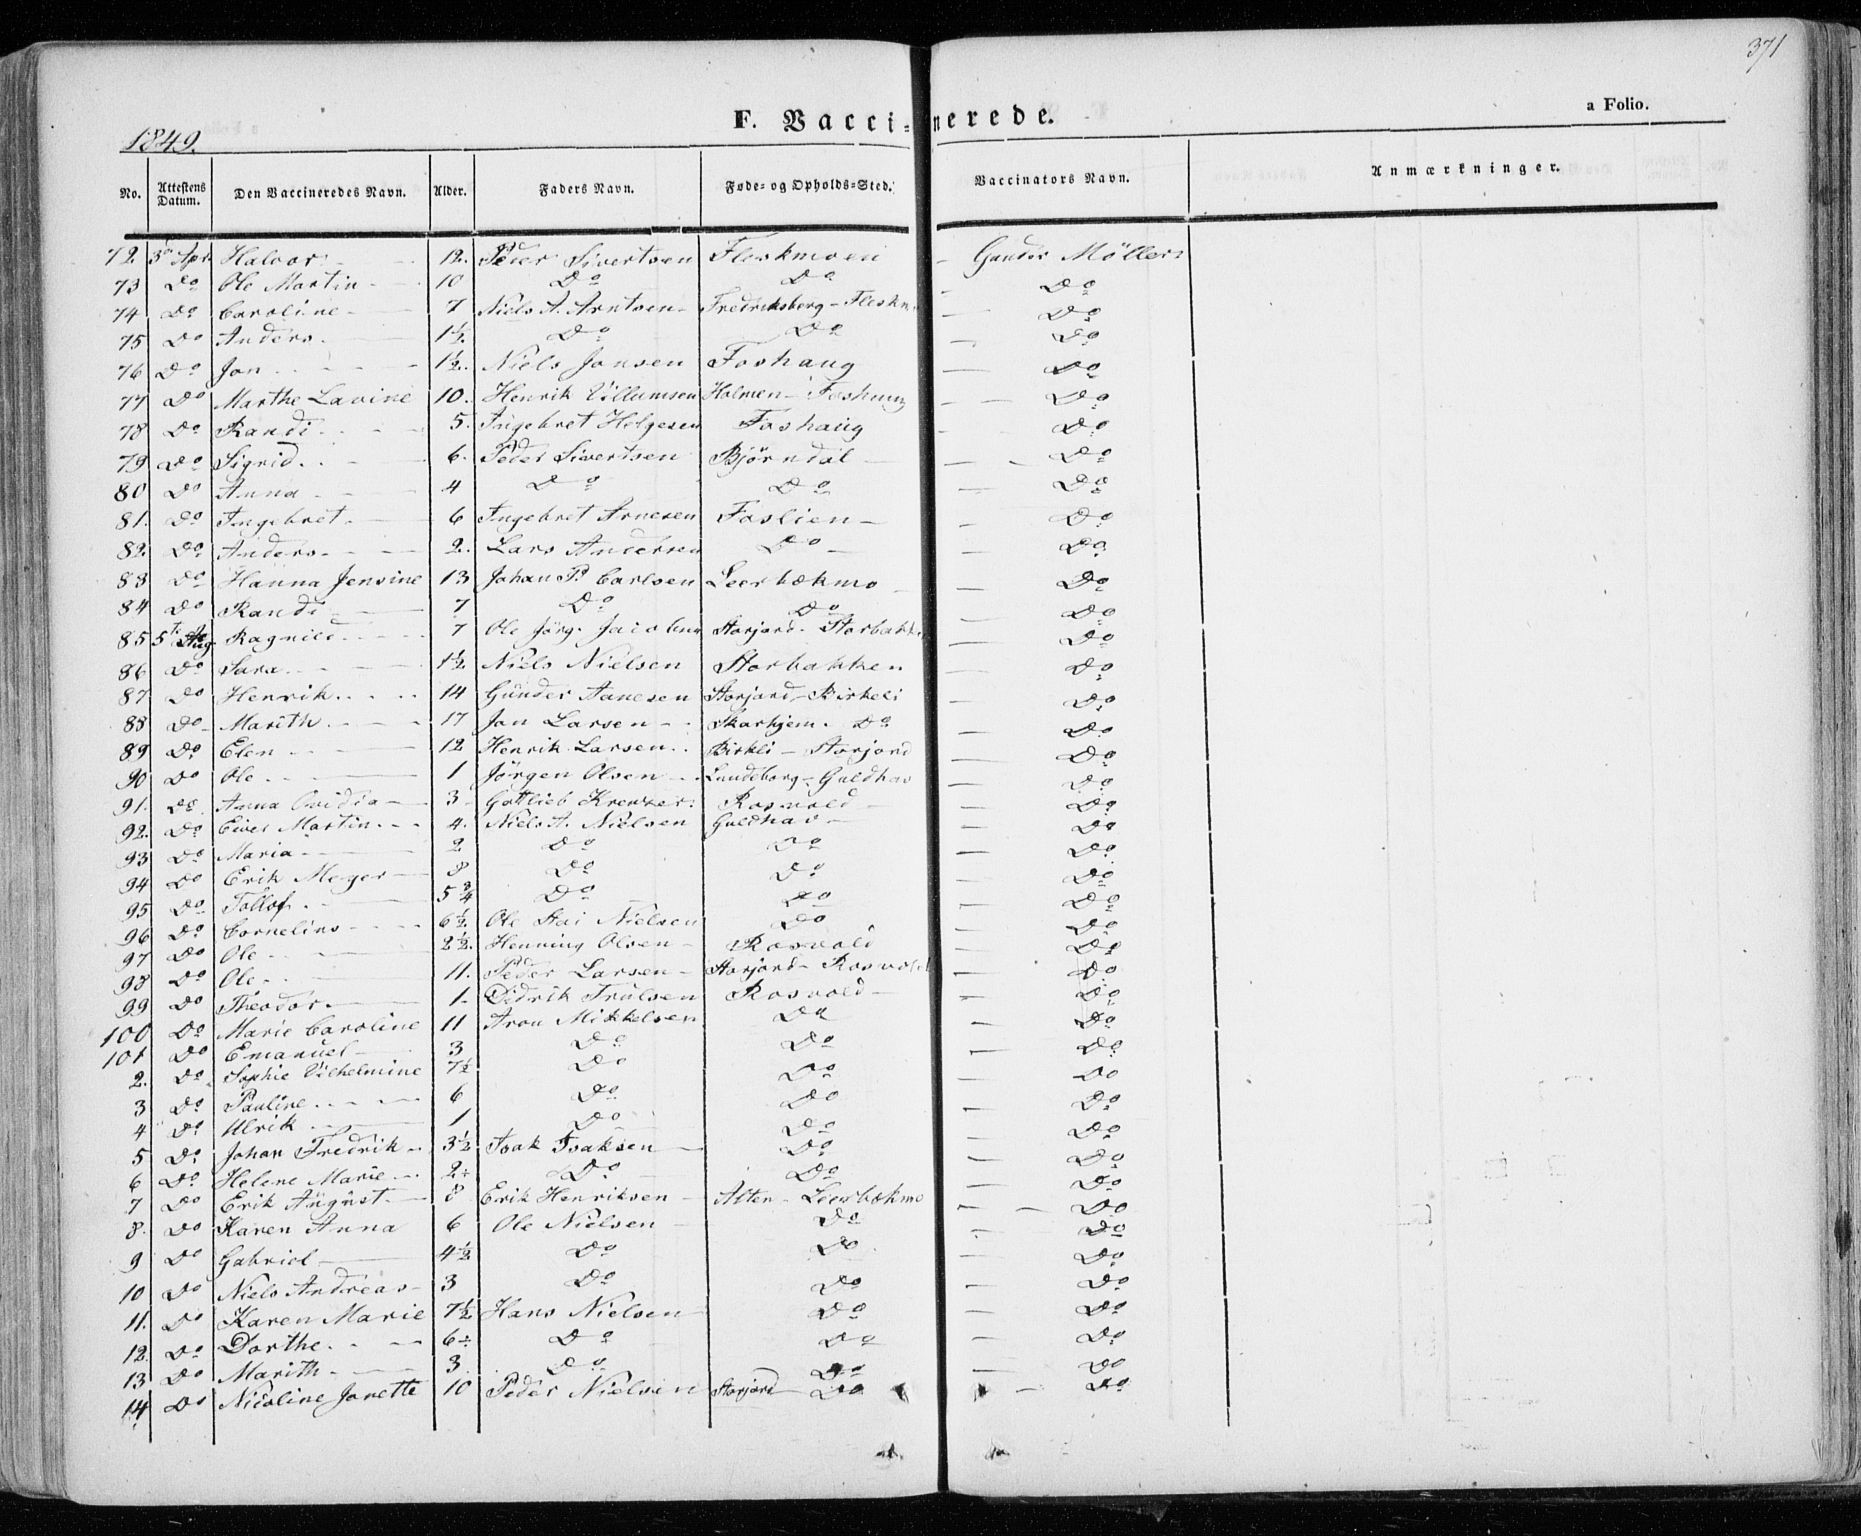 371
1849.
F. Vaccinerede.
a Folio.
No. Attestens Datum. Den Vaccineredes Navn. Alder. Faders Navn. Føde- og Opholds-Sted. Vaccinators Navn. Anmærkninger.
72. 3d Apr Halvor 12. Peder Sivertsen Fleskmoen Gunder Möller
73 Do Ole Martin 10 Do Do Do
74 Do Caroline 7 Niels A. Arntsen Fredriksberg - Do
75 Do Anders 1½. Do Do Do
76 Do Jon 1½. Niels Jonsen Foshaug Do
77 Do Marthe Lavine 10. Henrik Villumsen Holmen - Foshaug Do
78 Do Randi 5. Ingebret Helgesen Foshaug Do
79 Do Sigrid 6. Peder Sivertsen Bjørndal Do
80 Do Anna 4 Do Do Do
81. Do Ingebret 6 Ingebret Arnesen Foslien Do
82. Do Anders 2. Lars Andersen Do Do
83 Do Hanna Jensine 13 Johan P. Carlsen Leerbækmo Do
84 Do Randi 7 Do Do Do
85 5t Aug Ragnild 7 Ole Jörg. Jacobsen Storjord - Storbakken Do
86 Do Sara 1½ Niels Nielsen Storbakken Do
87 Do Henrik 14 Gunder Aanesen Storjord - Birkeli Do
88 Do Marith 17 Jon Larsen Skarhjem - Do Do
89 Do Elen 12 Henrik Larsen Birkli - Storjord Do
90 Do Ole 1 Jörgen Olsen Lundeborg - Guldhav Do
91. Do Anna Ovidia 3 Gottlieb Kreutzer Rosvold Do
92. Do Eiver Martin 4. Niels A. Nielsen Guldhav Do
93 Do Maria 2 Do Do Do
94 Do Erik Meyer 8 Do Do Do
95 Do Tollof 5¾ Do Do Do
96 Do Cornelius 6½. Ole Nielsen Do Do
97 Do Ole 2½. Henning Olsen Rosvold Do
98 Do Ole 11. Peder Larsen Storjord - Rosvold Do
99 Do Theodor 1. Didrik Trulsen Rosvold Do
100 Do Marie Caroline 11 Aron Mikkelsen Do Do
101 Do Emanuel 3 Do Do Do
2. Do Sophie Vilhelmine 7½ Do Do Do
3 Do Pauline 6 Do Do Do
4 Do Ulrik 1 Do Do Do
5 Do Johan Fredrik 3½ Isak Isaksen Do Do
6 Do Helene Marie 2 Do Do Do
7 Do Erik August 8 Erik Henriksen Alten - Leerbækmo Do
8. Do Karen Anna 6 Ole Nielsen Do Do
9 Do Gabriel 4½ Do Do Do
10 Do Niels Andreas 3 Do Do Do
11. Do Karen Marie 7½ Hans Nielsen Do Do
12. Do Dorthe 6 Do Do Do
13 Do Marith 3 Do Do Do
14 Do Nicoline Janette 10 Peder Nielsen Storjord Do Do